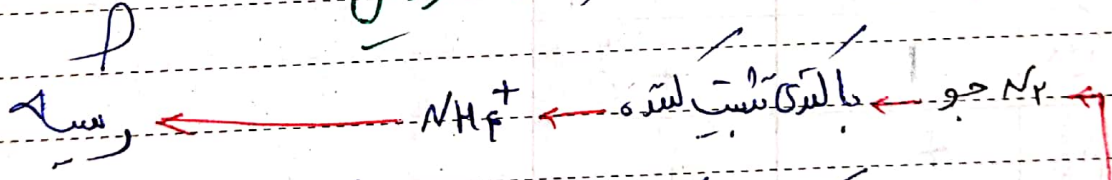 N₂ جو ← باکتری تثبیت کننده ← NH₄⁺ ←